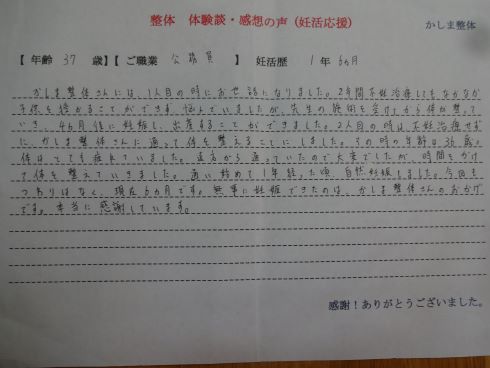 整体 体験談・感想の声(妊活応援)
かしま整体
【年齢 37 歳】【ご職業 公務員 】 妊活歴 1年 6ヵ月
かしま整体さんには、1人目の時にお世話になりました。2年間不妊治療してもなかなか
子供を授かることができず、悩んでいましたが、先生の施術を受けてから体が整って
いき、4ヵ月後に妊娠し、出産することができました。2人目の時は不妊治療せず
に、かしま整体さんに通って体を整えることにしました。その時の年齢は36歳。
体はとても疲れていました。遠方から通っていたので大変でしたが、時間をかけ
て体を整えていきました。通い始めて1年経った頃、自然妊娠しました。今回も
つわりはなく、現在6ヵ月です。無事に妊娠できたのは、かしま整体さんのおかげ
です。本当に感謝しています。
感謝!ありがとうございました。